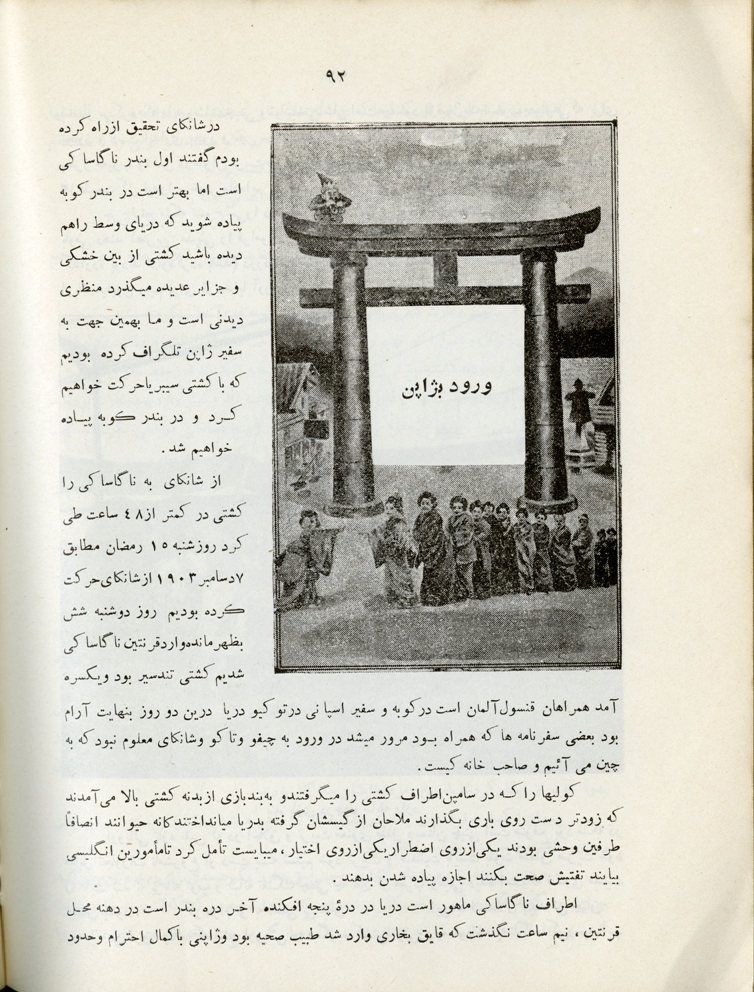 ۹۲
درشانکای تحقیق ازراه کرده
بودم گفتند اول بندر ناگاساکی
است اما بهتر است در بندر کوبه
پیاده شوید که دریای وسط راهم
دیده باشید کشتی از بین خشکی
و جزایر عدیده میگذرد منظری
دیدنی است و ما بهمین جهت به
سفیر ژاپن تلگراف کرده بودیم
که باکشتی سیبریاحرکت خواهیم
کرد و در بندر کوبه پیاده
خواهیم شد .
از شانکای به ناگاساکی را
کشتی در کمتر از ۴۸ ساعت طی
کرد روزشنبه ۱۵ رمضان مطابق
۷دسامبر ۱۹۰۳ ازشانکای حرکت
کرده بودیم روز دوشنبه شش
بظهرمانده‌وارد قرنتین ناگاساکی
شدیم کشتی تندسیر بود ویکسره
ورود بژاپن
آمد همراهان قنسول آلمان است درکوبه و سفیر اسپانی درتوکیو دریا درین دو روز بنهایت آرام
بود بعضی سفرنامه ها که همراه بود مرور میشد در ورود به چیفو وتاکو وشانکای معلوم نبود که به
چین می آئیم و صاحب خانه کیست .
کولیها را که در سامپن اطراف کشتی را میگرفتندو به‌بندبازی از بدنه کشتی بالا می‌آمدند
که زودتر دست روی باری بگذارند ملاحان از گیسشان گرفته بدریا میانداختندکانه حیوانند انصافاً
طرفین وحشی بودند یکی‌ازروی اضطراریکی‌ازروی اختیار ، میبایست تأمل کرد تامأمورین انگلیسی
بیایند تفتیش صحت بکنند اجازه پیاده شدن بدهند .
اطراف ناگاساکی ماهور است دریا در درهٔ پنجه افکنده آخر دره بندر است در دهنه محل
قرنتین ، نیم ساعت نگذشت که قایق بخاری وارد شد طبیب صحیه بود وژاپنی باکمال احترام وحدود